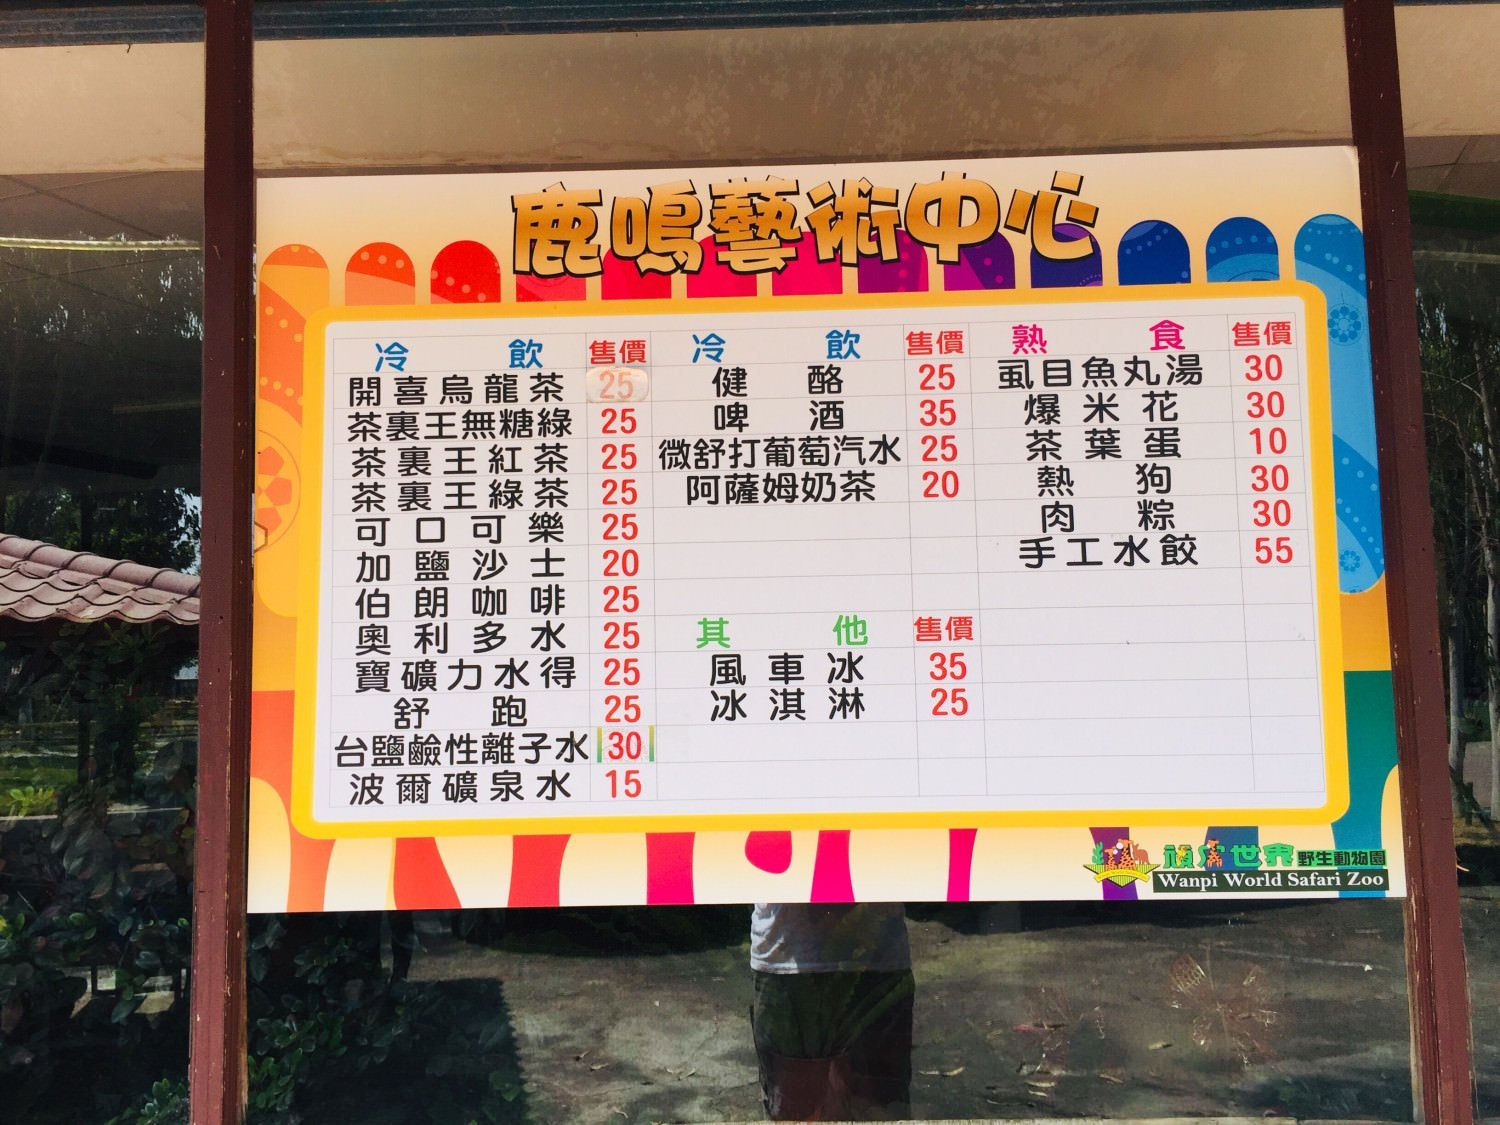 鹿鳴藝術中心
冷飲 售價 冷飲 售價 熟食 售價
開喜烏龍茶 25 健酪 25 虱目魚丸湯 30
茶裏王無糖綠 25 啤酒 35 爆米花 30
茶裏王紅茶 25 微舒打葡萄汽水 25 茶葉蛋 10
茶裏王綠茶 25 阿薩姆奶茶 20 熱狗 30
可口可樂 25 肉粽 30
加鹽沙士 20 手工水餃 55
伯朗咖啡 25
奧利多水 25 其他 售價
寶礦力水得 25 風車冰 35
舒跑 25 冰淇淋 25
台鹽鹼性離子水 30
波爾礦泉水 15
頑皮世界野生動物園
Wanpi World Safari Zoo